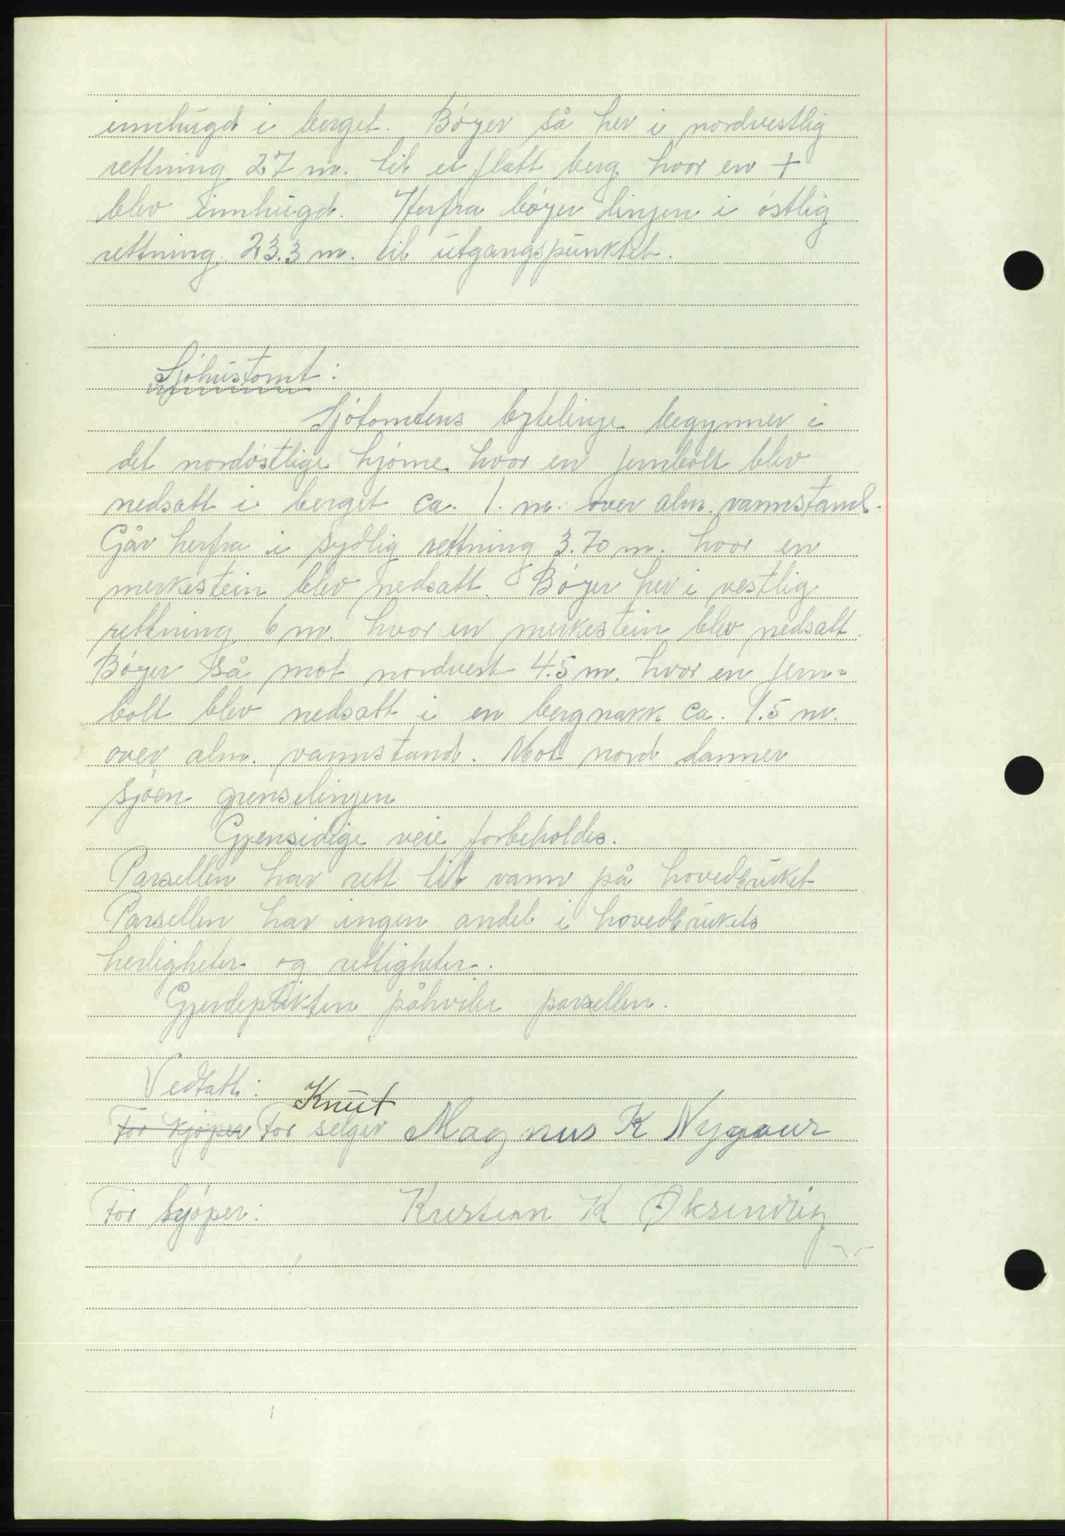 innhugd i berget. Bøyer så her i nordvestlig
rettning 27 m. til et flatt berg hvor en +
blev innhugd. Herfra bøyer linjen i østlig
rettning 23.3 m. til utgangspunktet.
Sjøhustomt:
Sjøtomtens bytelinje begynner i
det nordøstlige hjørne hvor en jernbolt blev
nedsatt i berget ca. 1. m. over alm. vannstand.
Går herfra i sydlig rettning 3.70 m. hvor en
merkestein blev nedsatt. Bøyer her i vestlig
rettning 6 m. hvor en merkestein blev nedsatt.
Bøyer så mot nordvest 4.5 m. hvor en jern-
bolt blev nedsatt i en bergnakk ca. 1.5 m.
over alm. vannstand. Mot nord danner
sjøen grenselinjen
Gjensidige veie forbeholdes.
Parsellen har rett til vann på hovedbruket
Parsellen har ingen andel i hovedbrukets
herligheter og rettigheter.
Gjerdeplikten påhviler parsellen.
Vedtatt:
Knut
For kjøper For selger Magnus K Nygaar
For kjøper: Kristian K Øksendvig